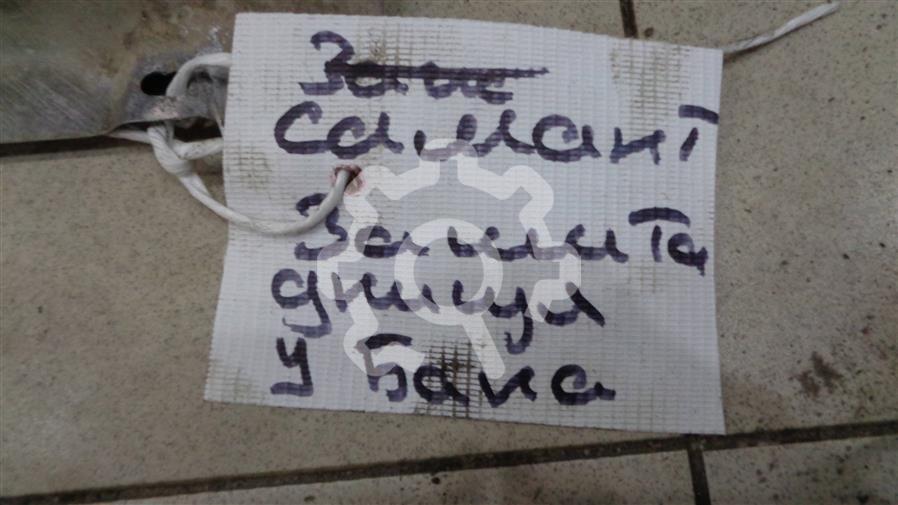 Самант
Защита
днища
у бака